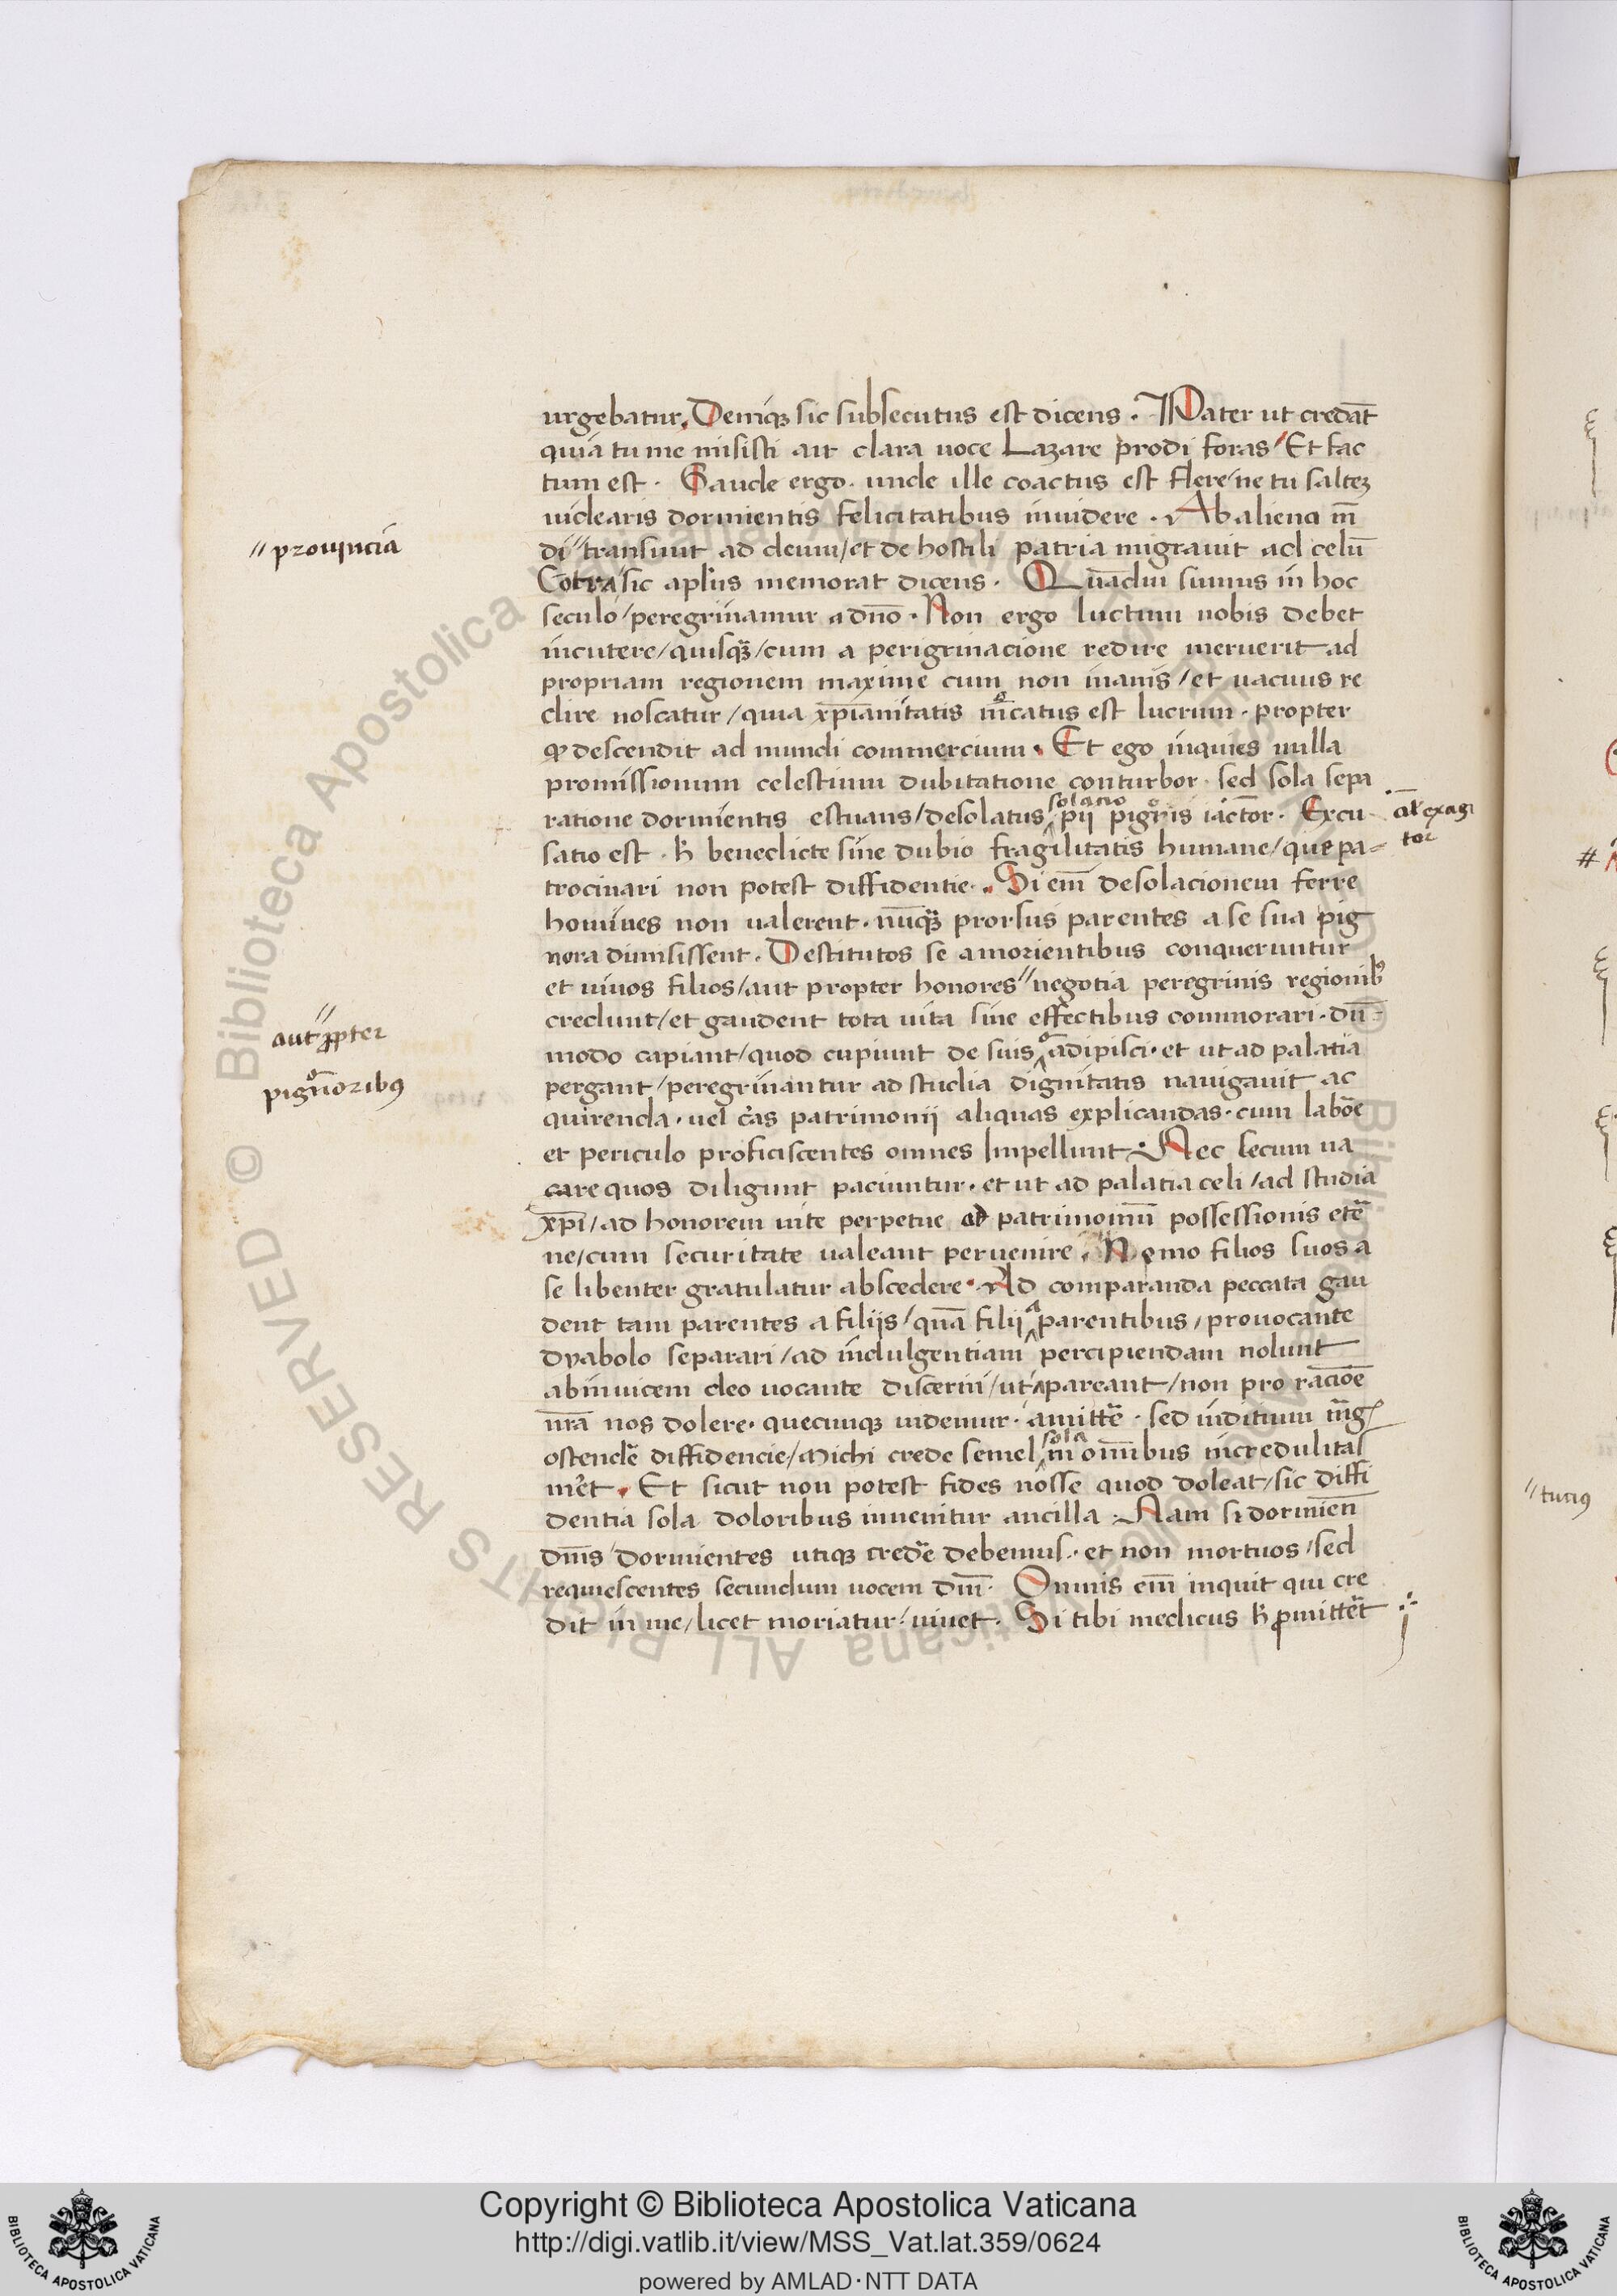 urgebatur. Deniqꝫ sic subsecutus est dicens. Pater ut credāt
quia tu me misisti ait clara uoce Lazare prodi foras / Et fac
tum est. Gaude ergo. unde ille coactus est flere / ne tu salteꝫ
uidearis dormientis felicitatibus inuidere. Ab aliena m̄
// prouincia
di // transiuit ad deum / et de hostili patria migrauit ad celū
sic aplūs memorat dicens. Quādiu sumus in hoc
seculo / peregrinamur a dn̄o. Non ergo luctum nobis debet
incutere / quisqꝫ / cum a perigrinacione redire meruerit ad
propriam regionem maxime cum non inanis / et uacuus re
dire noscatur / quia xp̄ianitatis est lucrum. propter
ꝙ descendit ad mundi commercium. Et ego inquies nulla
promissionum celestium dubitatione conturbor. sed sola sepa
ratione dormientis estuans / desolatus solatio pii pigoris iactor. Excu
al' exagi
tor
satio est. h̄ benedicte sine dubio fragilitatis humane / que pa-
trocinari non potest diffidentie. Si em̄ desolacionem ferre
homines non ualerent. nūqꝫ prorsus parentes a se sua pig
nora dimisissent. Destitutos se a morientibus conqueruntur
et uiuos filios / aut propter honores // negotia peregrinis regionibꝰ
// aut ꝓpter
credunt / et gaudent tota uita sine effectibus commorari. dū-
modo capiant / quod cupiunt de suis adipisci. et ut ad palatia
pignoribꝰ
pergant / peregrinantur ad studia dignitatis nauigauit ac
quirenda. uel cās patrimonii aliquas explicandas. cum labōe
et periculo proficiscentes omnes Impellunt. Nec secum ua
care quos diligunt paciuntur. et ut ad palatia celi / ad studia
xp̄i / ad honorem uite perpetue ad patrimoniū possessionis etē
ne / cum securitate ualeant peruenire. Nemo filios suos a
se libenter gratulatur abscedere. Ad comparanda peccata gau
dent tam parentes a filiis / quā filii a parentibus, prouocante
dyabolo separari / ad indulgentiam percipiendam nolunt
abinuicem deo uocante discerni / ut pareant / non pro racioē
nr̄a nos dolere. quecunqꝫ uidemur. amittē. sed inditium
ostendē diffidencie / Michi crede semel sola in omībus incredulitas
mēt. Et sicut non potest fides nosse quod doleat / sic diffi
dentia sola doloribus inuenitur ancilla. Nam si dormien̄
dn̄s / dormientes utiqꝫ credē debemus. et non mortuos / sed
requiescentes secundum uocem dn̄i. Omnis em̄ inquit qui cre
dit in me / licet moriatur / uiuet. Si tibi medicus h̄ ꝓmittēt
# 
// tutiꝰ
© Biblioteca Apostolica Vaticana ALL RIGHTS RESERVED
BIBLIOTECA APOSTOLICA VATICANA
Copyright © Biblioteca Apostolica Vaticana
http://digi.vatlib.it/view/MSS_Vat.lat.359/0624
powered by AMLAD·NTT DATA
BIBLIOTECA APOSTOLICA VATICANA